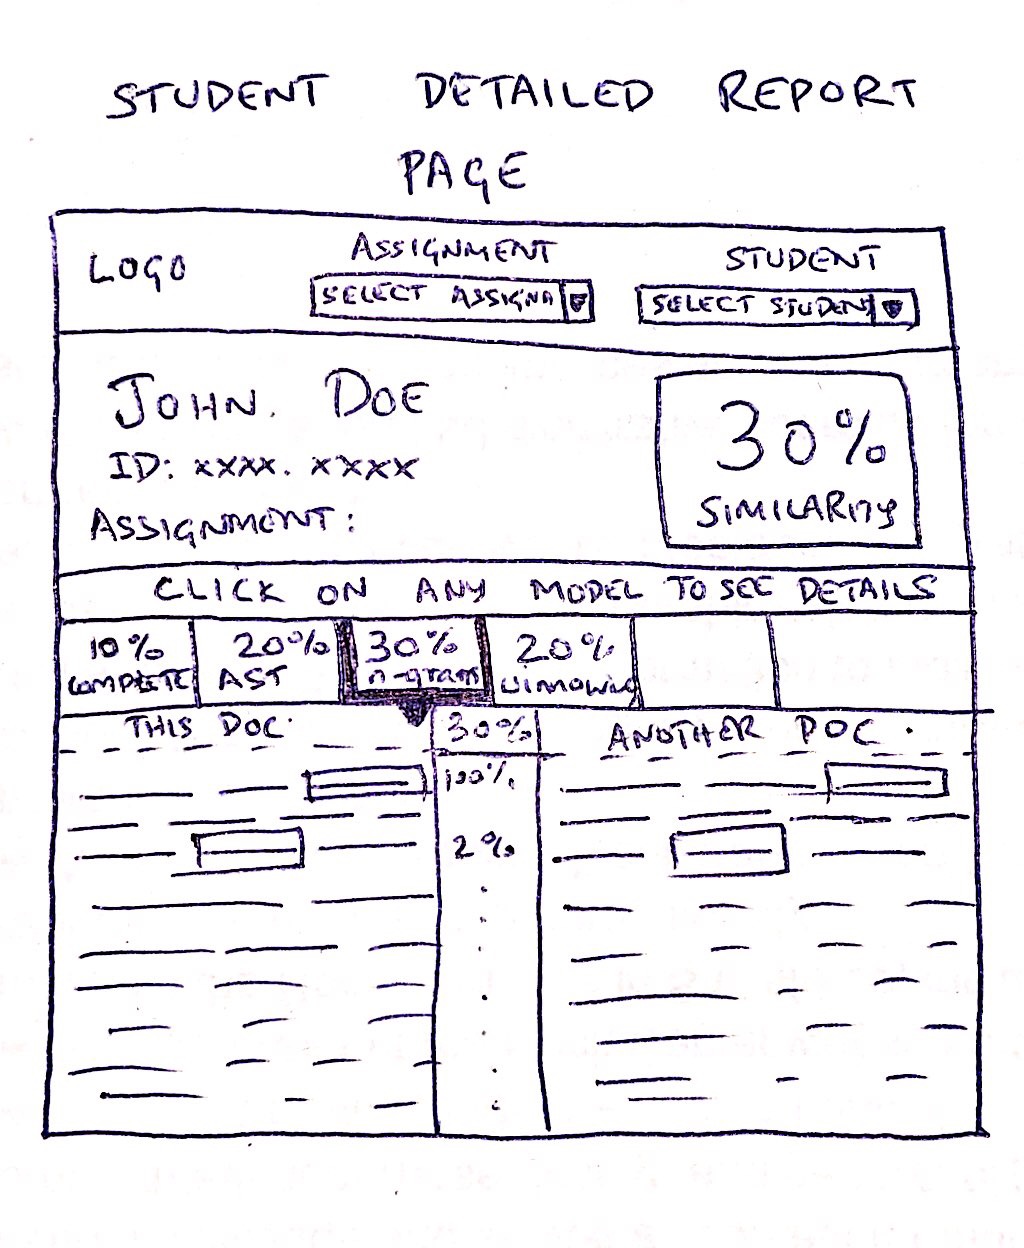 STUDENT DETAILED REPORT
PAGE
LOGO
ASSIGNMENT
SELECT ASSIGNA
STUDENT
SELECT STUDENT
JOHN. DOE
ID: xxxx. xxxx
ASSIGNMENT:
30%
SIMILARITY
CLICK ON ANY MODEL TO SEE DETAILS
10%
COMPLETE
20%
AST
30%
n-gram
20%
THIS DOC.
30%
ANOTHER DOC.
100%
2%